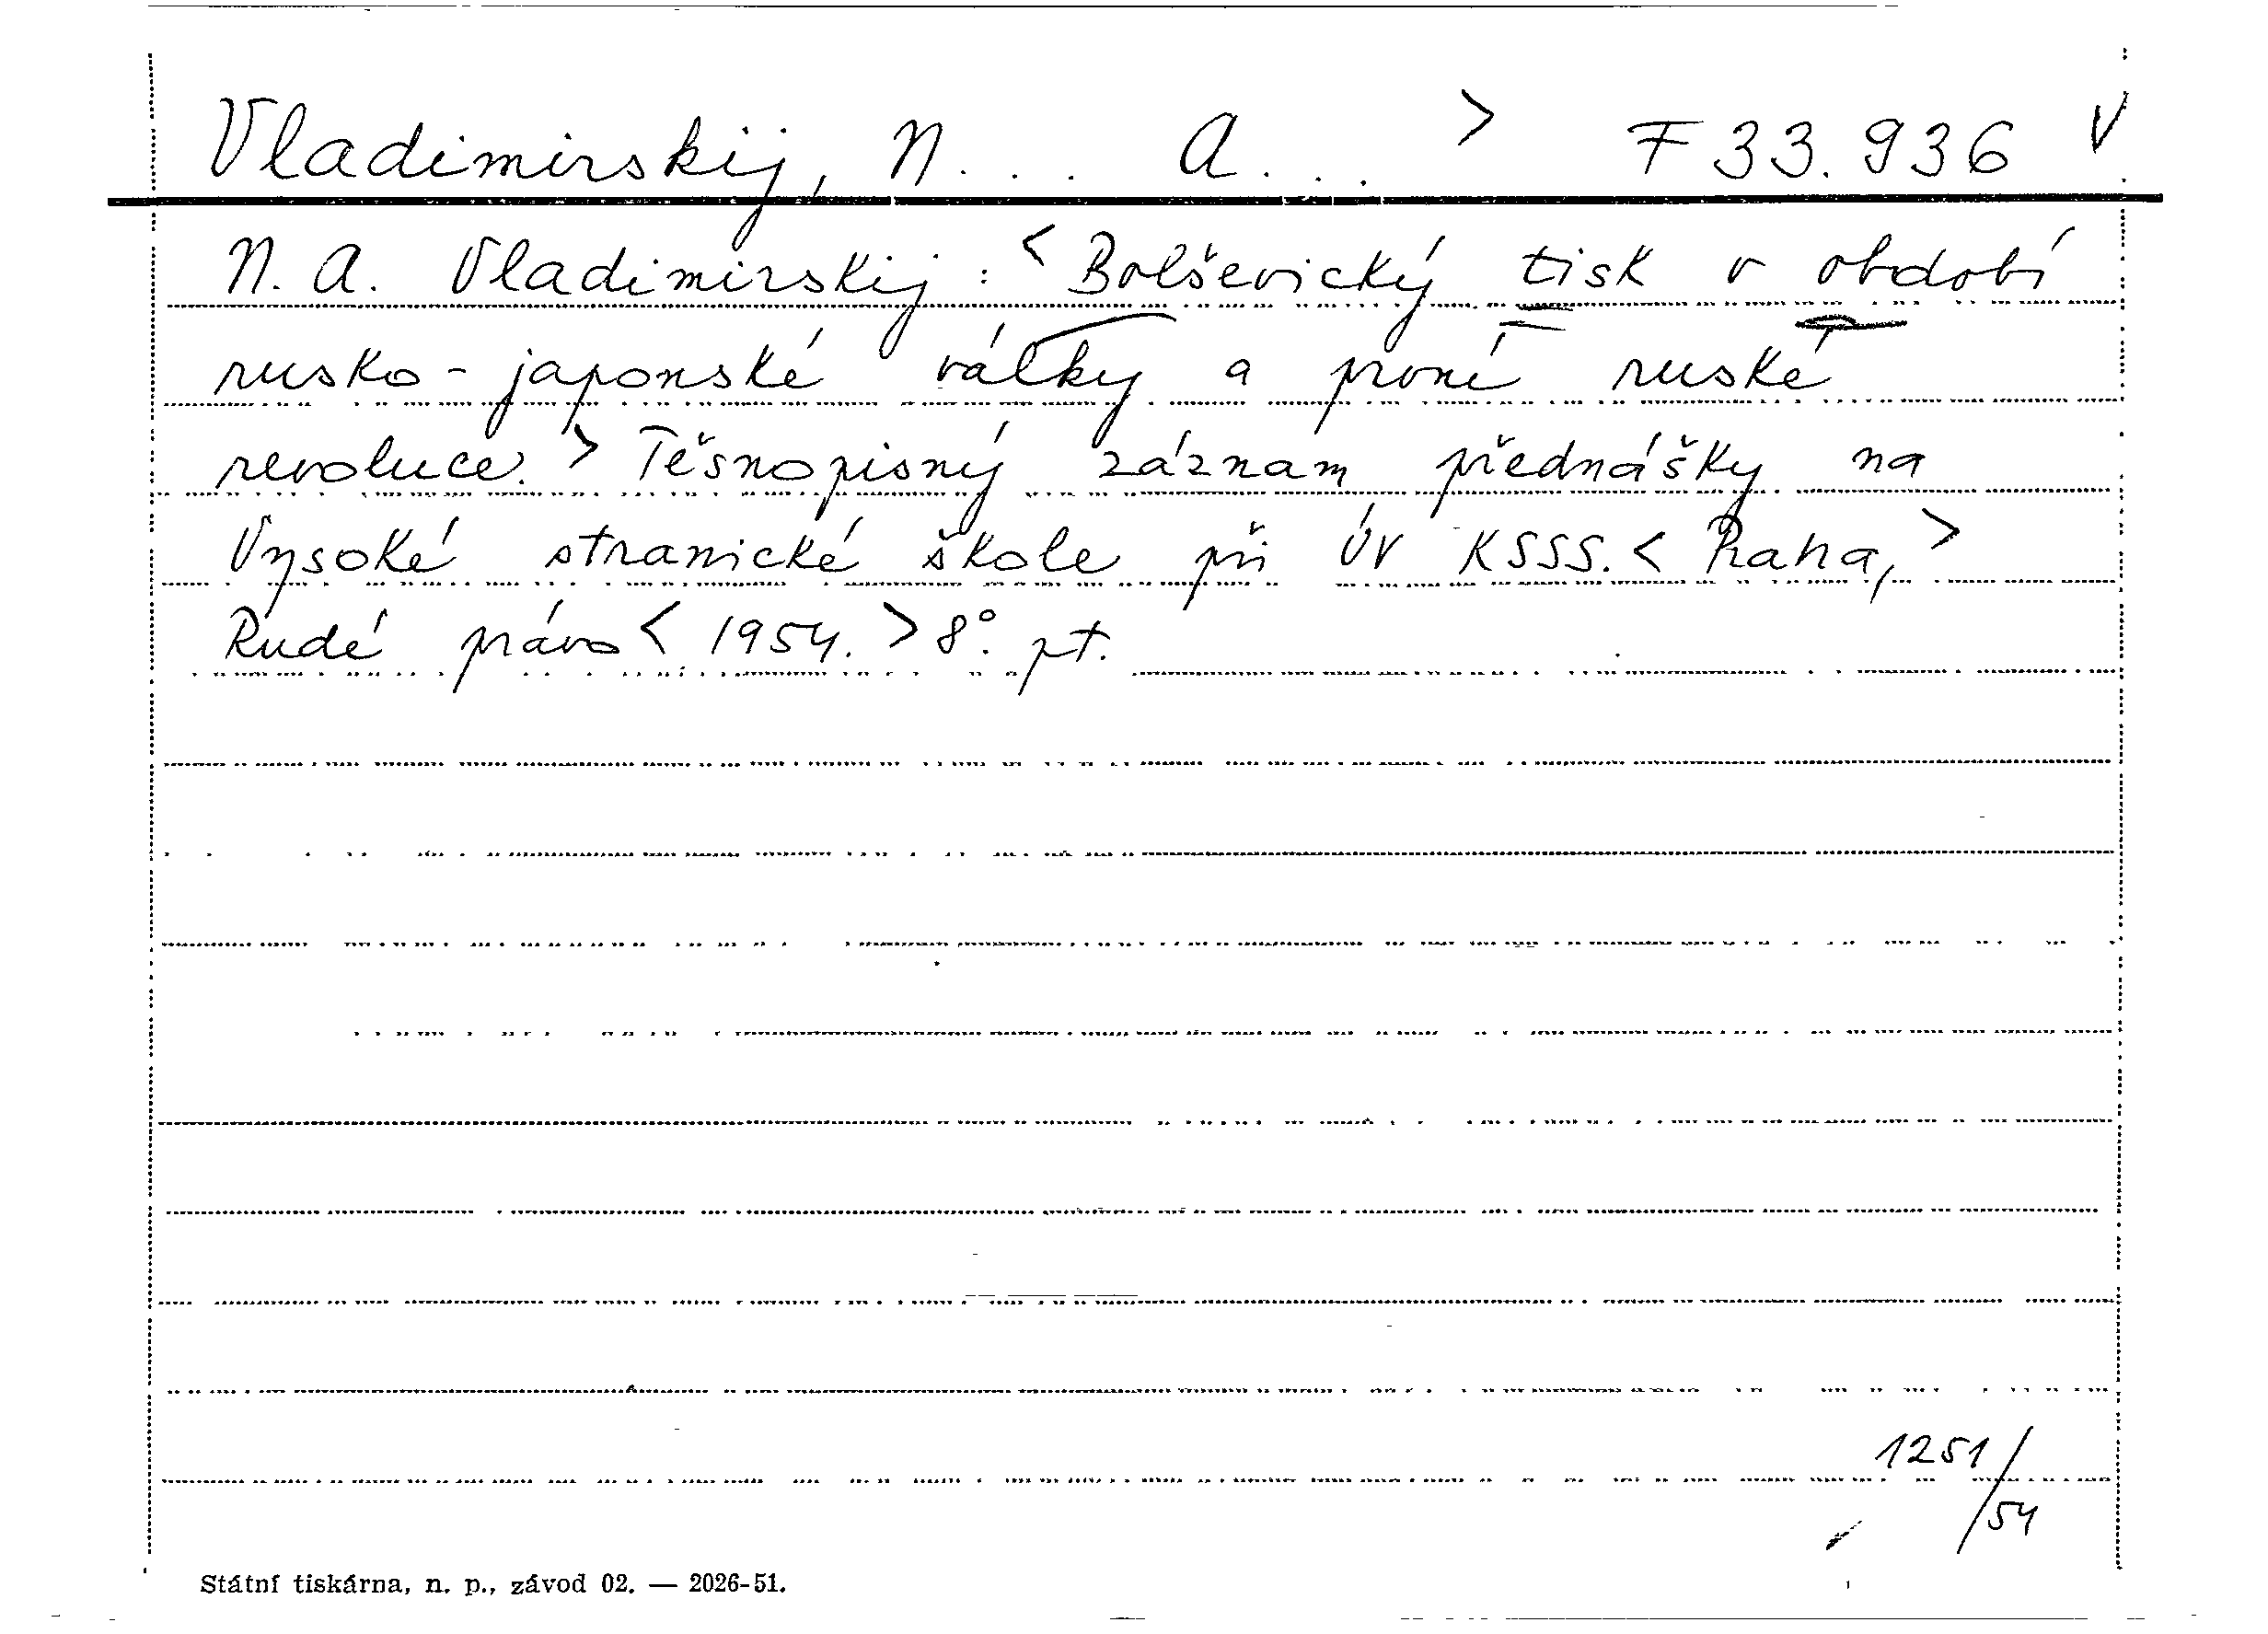 Vladimirskij, N... A... > F 33.936 V
N. A. Vladimirskij : < Bolševický tisk v období
rusko-japonské války a první ruské
revoluce. > Těsnopisný záznam přednášky na
Vysoké stranické škole při ÚV KSSS. < Praha, >
Rudé právo < 1954. > 8°. pt.
1251/54
Státní tiskárna, n. p., závod 02. — 2026-51.